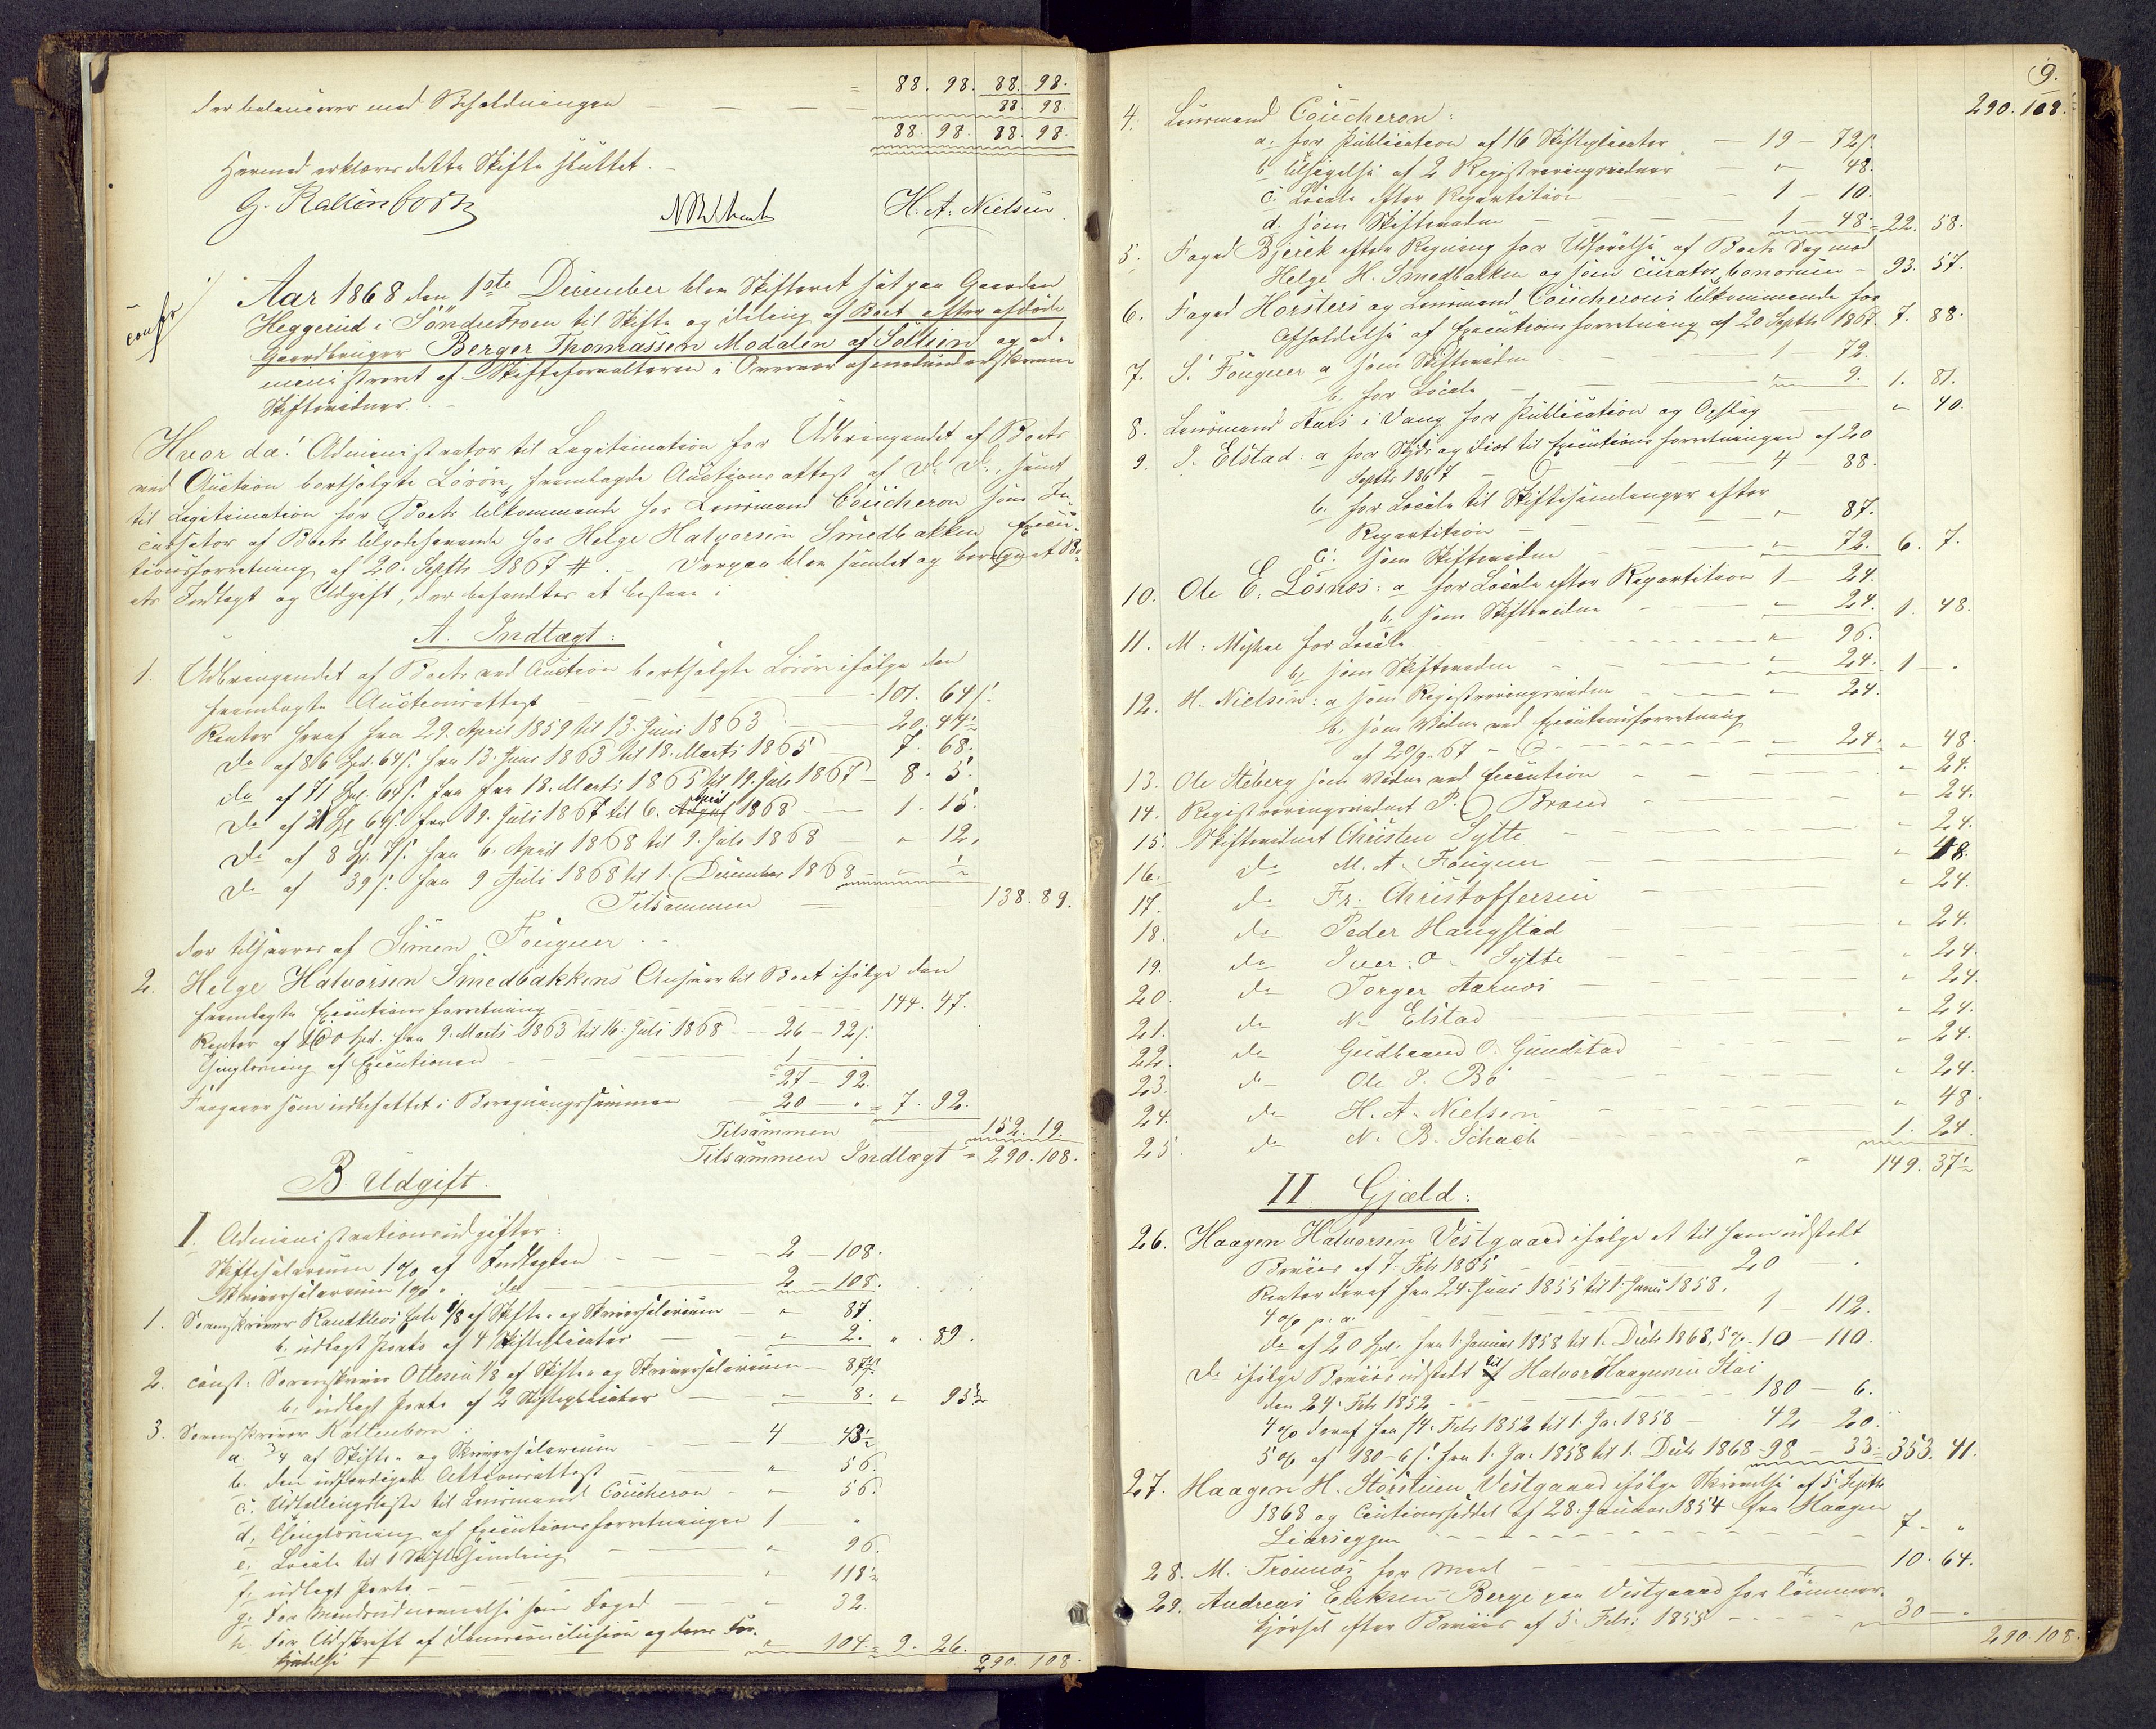 88. 98. 88. 98.
der balancerer med Beholdningen — — — 88. 98.
88. 98. 88. 98.
Hermed erklæres dette Skifte sluttet. —
G. Kallenborn
H. A. Nielsen
confr
Aar 1868 den 1ste December blev Skifteret sat paa Gaarden
Heggerud i Søndre Froen til Skifte og Deling af Boet efter afdøde
Gaardbruger Berger Thomassen Modalen af Sollien og ad-
ministreret af Skifteforvalteren i Overvær af medunderskrevne
Skiftevidner. —
Hvor da! Administrator til Legitimation for Udbringendet af Boets
ved Auction bortsolgte Løsøre, fremlagde Auctionsattest af D. D., samt
til Legitimation for Boets tilkommende hos Lensmand Coucheron som In-
cassator af Boets tilgodehavende hos Helge Halvorsen Smedbakken Execu-
tionsforretning af 20. Septbr 1867 #. — Derpaa blev samlet og beregnet Bo-
ets Indtægt og Udgift, der befandtes at bestaae i
A. Indtægt:
1. Udbringendet af Boets ved Auction bortsolgte Løsøre ifølge den
fremlagte Auctionsattest — 101. 64 ß.
Renter heraf fra 29. April 1859 til 13. Juni 1863 — 20. 44½
Do af 86 Spd. 64 ß. fra 13. Juni 1863 til 18. Marts 1865 — 7. 68.
do af 71 Spd. 64 ß. fra fra 18. Marts 1865 til 19. Juli 1867 — 8. 5.
Do af 31 Sp 64 ß. fra 19. Juli 1867 til 6. April 1868 — 1. 15.
Do af 8 Sp. 7 ß. fra 6. April 1868 til 9. Juli 1868 — " 12.
Do af 39 ß. fra 9 Juli 1868 til 1. December 1868 — " ½
Tilsammen — 138. 89.
der tilsvares af Simen Fougner. —
2. Helge Halvorsen Smedbakkens Ansvar til Boet ifølge den
fremlagte Executionsforretning — 144. 47.
Renter af 100 Spd. fra 9. Marts 1863 til 16. Juli 1868 — 26 — 92 ß.
Thinglæsning af Executionen — 1 — .
27 — 92.
Fragaaer som indbefattet i Beregningssummen — 20 — . = 7. 92.
Tilsammen — 152. 19.
Tilsammen Indtægt = 290. 108.
B. Udgift.
I. Administrationsudgifter:
Skiftesalarium 1% af Indtægten — 2 — 108.
Skriversalarium 1% " do — 2 — 108.
1. Sorenskriver Randklevs Enke 1/8 af Skifte- og Skriversalarium — " 87
b. udlagt Porto af 4 Skifteplacater — " 2. " 89.
2. const. Sorenskriver Ottesen 1/8 af Skifte- og Skriversalarium — 87½
b. udlagt Porto af 2 Skifteplacater — " 8. " 95½
3. Sorenskriver Kallenborn:
a. ¾ af Skifte- og Skriversalarium — 4 43½
b. den udfærdigede Attionsattest — " 56.
c. Udtællingsliste til Lensmand Coucheron — " 56.
d. Thinglæsning af Executionsforretningen 1 — "
e. Locale til 1 Skiftesamling — " 96.
f. udlagt Porto — " 118½
g. for Mandsudnævnelse som Foged — " 32.
h. For Udskrift af Domsconclusion og dens For-
kyndelse — " 104. = 9. 26.
290. 108.
9.
290. 108.
4. Lensmand Coucheron:
a. for Publication af 16 Skifteplacater — 19 — 72 ß.
b. Tilsigelse af 2 Registreringsvidner — " 48.
c. Locale efter Repartition — 1 — 10.
d. som Skiftevidne — 1 — 48 = 22. 58.
5. Foged Bjerck efter Regning for Udførelse af Boets Sag mod
Helge H. Smedbakken og som curator bonorum — 93. 57.
6. Foged Horsters og Lensmand Coucherons tilkommende for
Afholdelse af Executionsforretning af 20 Septbr 1867. 7. 88.
7. S. Fougner a som Skiftevidne — 1 — 72.
b. for Locale — " 9. 1. 81.
8. Lensmand Aars i Vang for Publication og Opslag — " 40.
9. J. Elstad: a for Skyds og Diæt til Executionsforretningen af 20
Septbr 1867 — 4 — 88.
b. for Locale til Skiftesamlinger efter
Repartition — " 87.
c. som Skiftevidne — " 72. 6. 7.
10. Ole E. Losnes: a for Locale efter Repartition 1 — 24.
b. som Skiftevidne — " 24. 1. 48.
11. M: Myhre for Locale — " 96.
b. som Skiftevidne — " 24. 1 — .
12. H. Nielsen: a som Registreringsvidne — " 24.
b. som Vidne ved Executionsforretning
af 20/9-67 — " 24. " 48.
13. Ole Aaberg som Vidne ved Execution — " 24.
14. Registreringsvidnet P. Brand — " 24.
15. Skiftevidnet Christen Sylte — " 24.
16. do M. A. Fougner — " 48.
17. do Fr. Christoffersen — " 24.
18. do Peder Haugstad — " 24.
19. do Iver O. Sylte — " 24.
20. do Torger Aarnes — " 24.
21. do N. Elstad — " 24.
22. do Gudbrand O. Gunstad — " 24.
23. do Ole J. Bø — " 24.
24. do H. A. Nielsen — " 48
25. do N. B. Schack — 1. 24.
" 149. 37½
II. Gjæld:
26. Haagen Halvorsen Vestgaard ifølge et til ham udstedt
Beviis af 7. Febr 1855 — 20 — .
Renter deraf fra 24. Juni 1855 til 1. Januar 1858.
4% p. a. — 1 — 112.
do af 20 Spd. fra 1. Januar 1858 til 1. Decbr 1868, 5% — 10 — 110.
Do ifølge Beviis udstedt til Halvor Haagensen Stai
den 24. Febr 1852 — 180 — 6.
4% deraf fra 24. Febr 1852 til 1. Ja. 1858 — 42 — 20.
5% af 180 — 6 ß. fra 1. Ja. 1858 til 1. Decbr 1868 — 98 — 33 = 353. 41.
27. Haagen H. Storstuen Vestgaard ifølge Skrivelse af 5. Septbr
1868 og Cautionsseddel af 28. Januar 1854 fra Haagen
7 — "
28. M. Tromnæs for Meel — 10. 64.
29. Andreas Eriksen Berge paa Vestgaard for Tømmer-
kjørsel efter Beviis af 5. Febr. 1855 — 30 — .
290. 108.